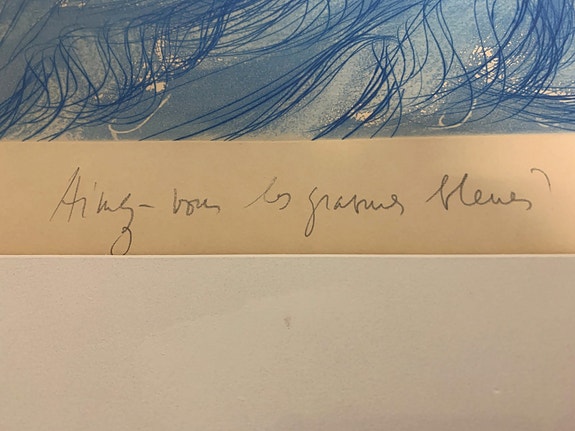 Aimez-vous les gravures bleues?